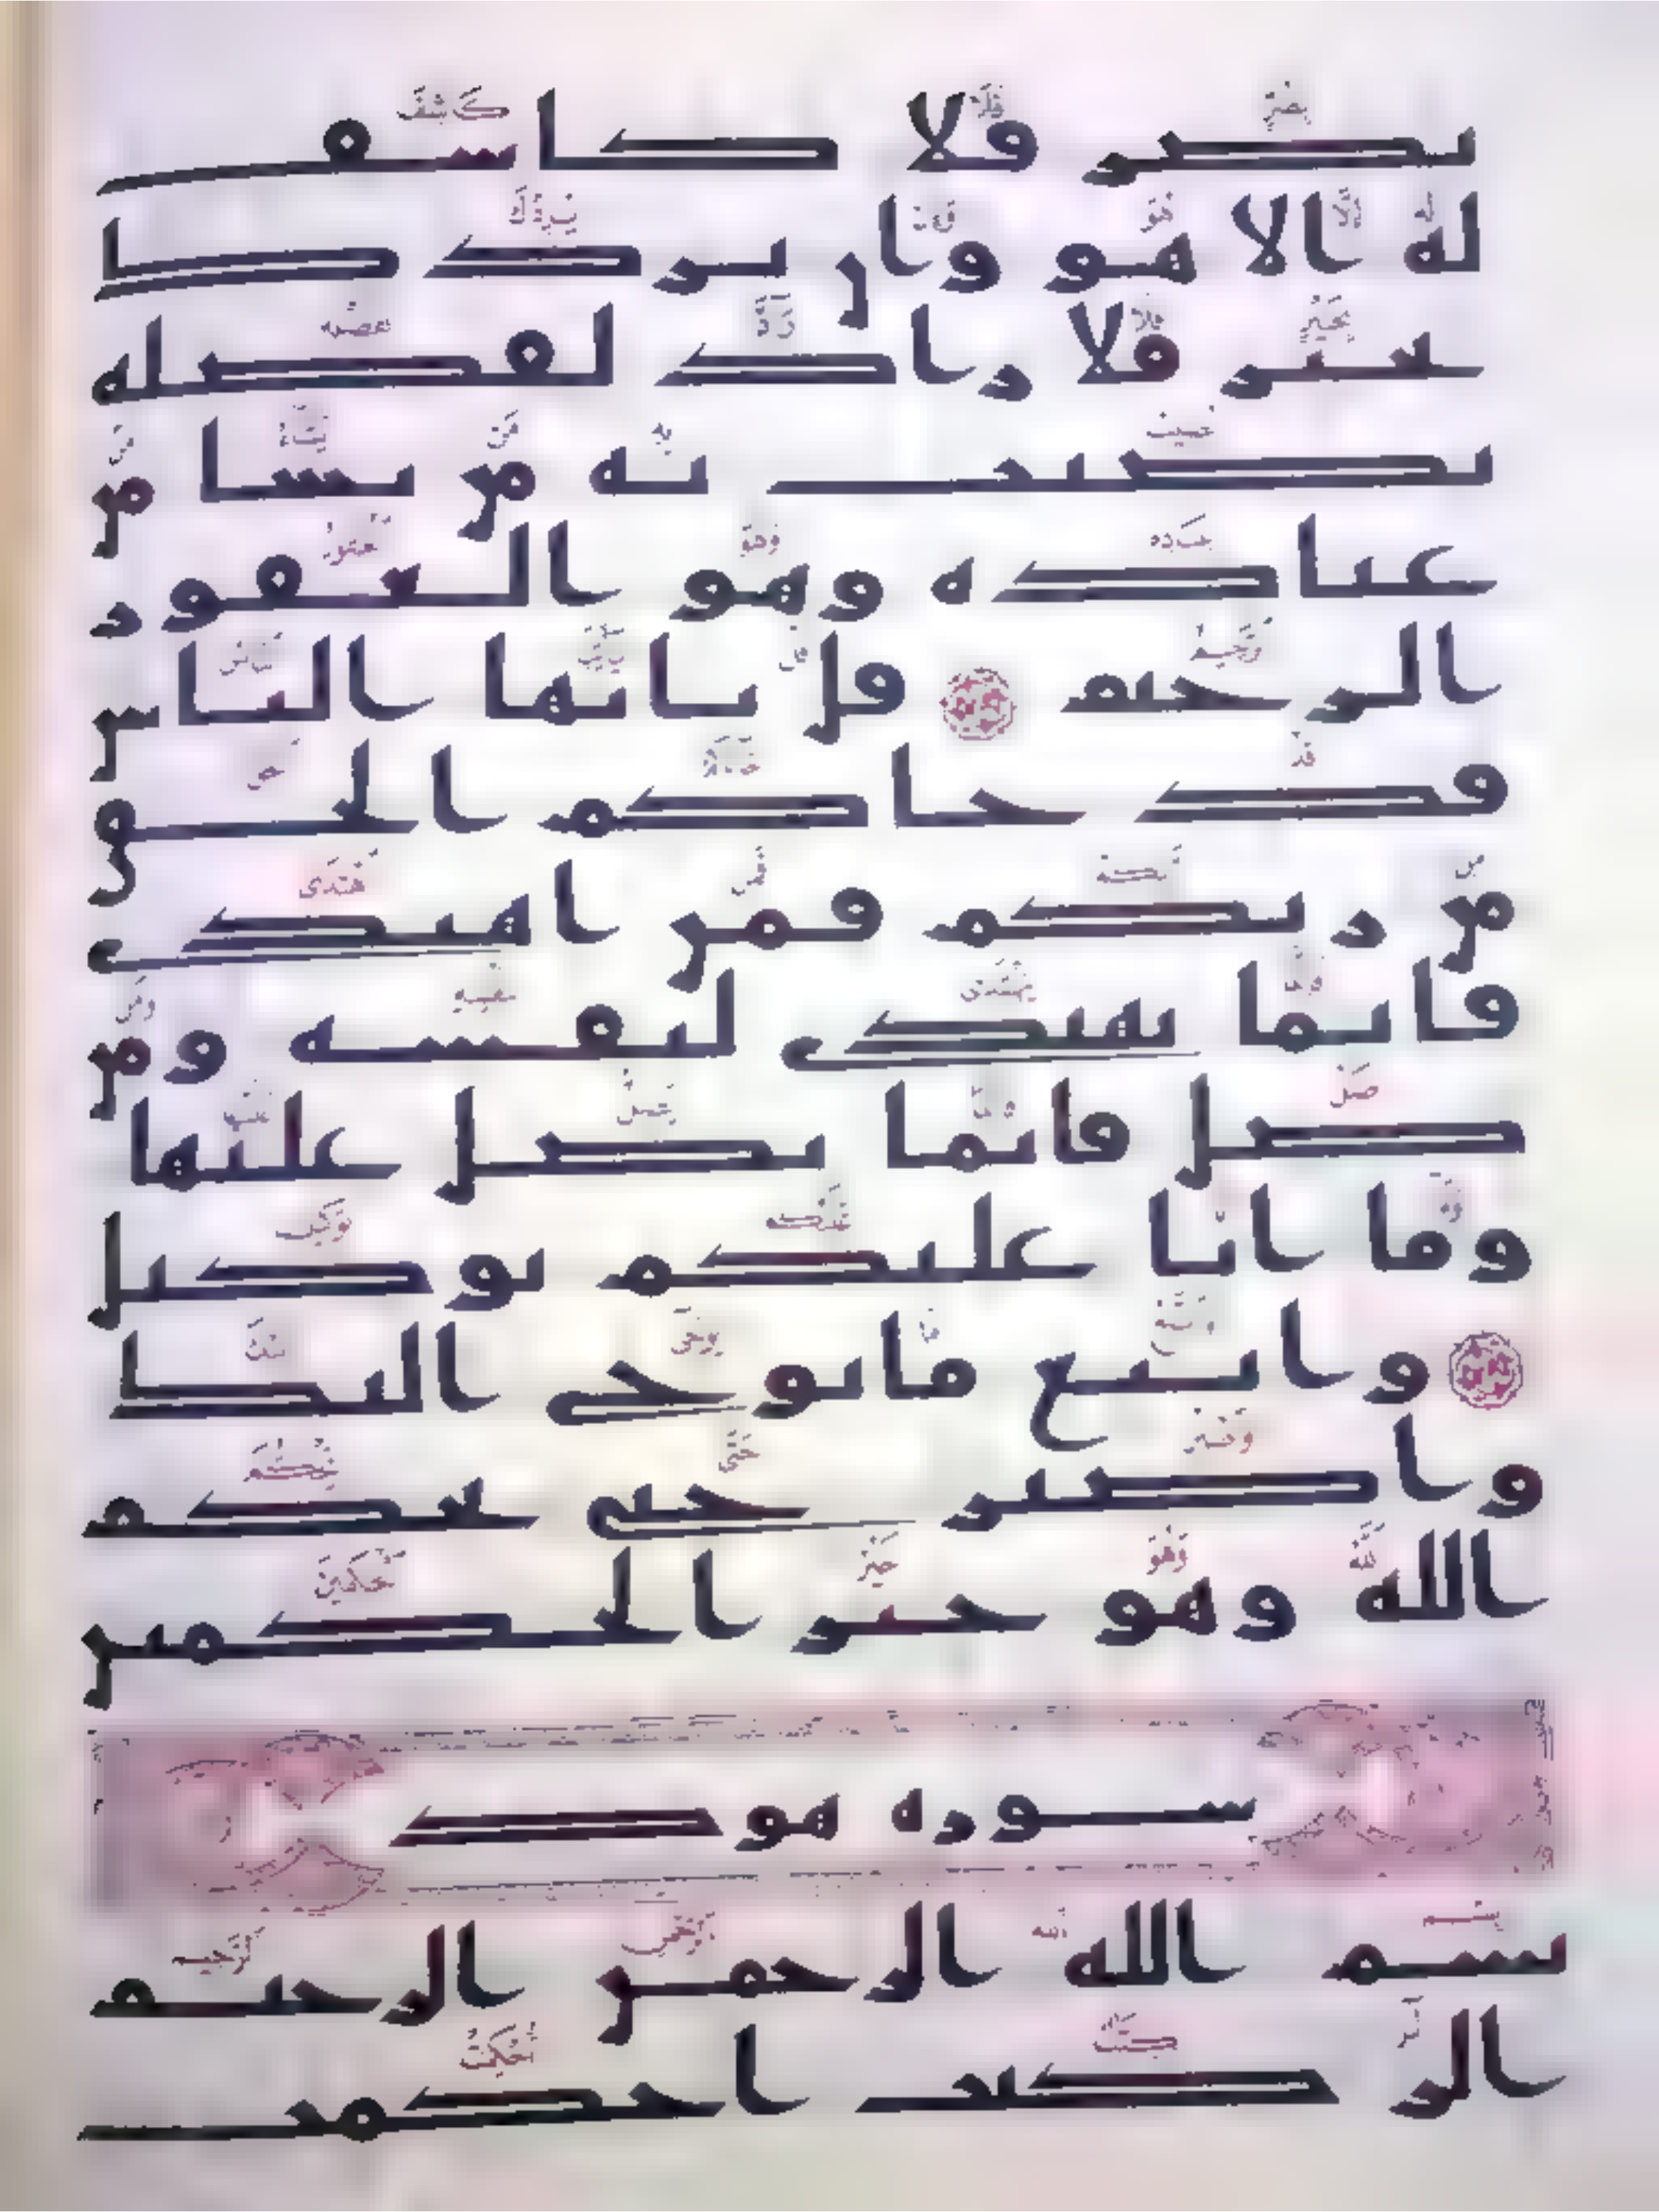 بضر فلا كاشف
له الا هو وان يردك
بخير فلا راد لفضله
يصيب به من يشا من
عباده وهو الغفور
الرحيم قل يايها الناس
قد جاكم الحق
من ربكم فمن اهتدى
فانما يهتدى لنفسه ومن
ضل فانما يضل عليها
وما انا عليكم بوكيل
واتبع ما يوحى اليك
واصبر حتى يحكم
الله وهو خير الحكمين
سورة هود
بسم الله الرحمن الرحيم
الر كتب احكمت